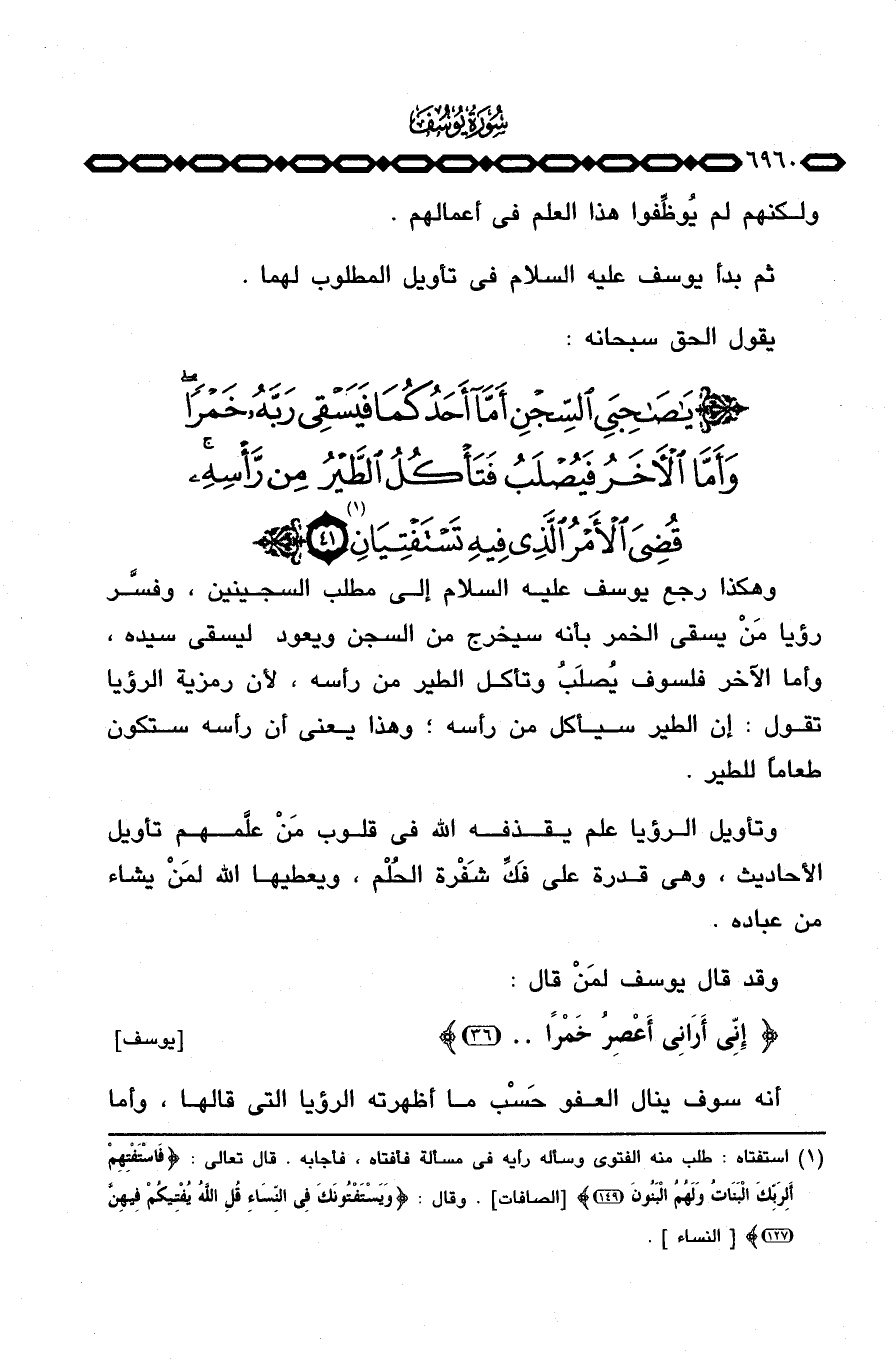 سُورَةُ يُوسُفَ
٦٩٦٠
ولكنهم لم يُوظِّفوا هذا العلم فى أعمالهم .
ثم بدأ يوسف عليه السلام فى تأويل المطلوب لهما .
يقول الحق سبحانه :
﴿ يَٰصَٰحِبَىِ ٱلسِّجْنِ أَمَّآ أَحَدُكُمَا فَيَسْقِى رَبَّهُۥ خَمْرًاۖ
وَأَمَّا ٱلْأَخَرُ فَيُصْلَبُ فَتَأْكُلُ ٱلطَّيْرُ مِن رَّأْسِهِۦۚ
قُضِىَ ٱلْأَمْرُ ٱلَّذِى فِيهِ تَسْتَفْتِيَانِ (١) ٤١ ﴾
وهكذا رجع يوسف عليه السلام إلى مطلب السجينين ، وفسَّر
رؤيا مَنْ يسقى الخمر بأنه سيخرج من السجن ويعود ليسقى سيده ،
وأما الآخر فلسوف يُصلَبُ وتأكل الطير من رأسه ، لأن رمزية الرؤيا
تقول : إن الطير سيأكل من رأسه ؛ وهذا يعنى أن رأسه ستكون
طعاماً للطير .
وتأويل الرؤيا علم يقذفه الله فى قلوب مَنْ علَّمهم تأويل
الأحاديث ، وهى قدرة على فَكِّ شَفْرة الحُلْم ، ويعطيها الله لمَنْ يشاء
من عباده .
وقد قال يوسف لمَنْ قال :
﴿ إِنِّى أَرَانِى أَعْصِرُ خَمْرًا .. (٣٦) ﴾ [يوسف]
أنه سوف ينال العفو حَسْب ما أظهرته الرؤيا التى قالها ، وأما
(١) استفتاه : طلب منه الفتوى وسأله رأيه فى مسألة فأفتاه ، فأجابه . قال تعالى : ﴿ فَاسْتَفْتِهِمْ
أَلِرَبِّكَ الْبَنَاتُ وَلَهُمُ الْبَنُونَ (١٤٩) ﴾ [الصافات] . وقال : ﴿ وَيَسْتَفْتُونَكَ فِى النِّسَاءِ قُلِ اللَّهُ يُفْتِيكُمْ فِيهِنَّ
(١٢٧) ﴾ [ النساء ] .